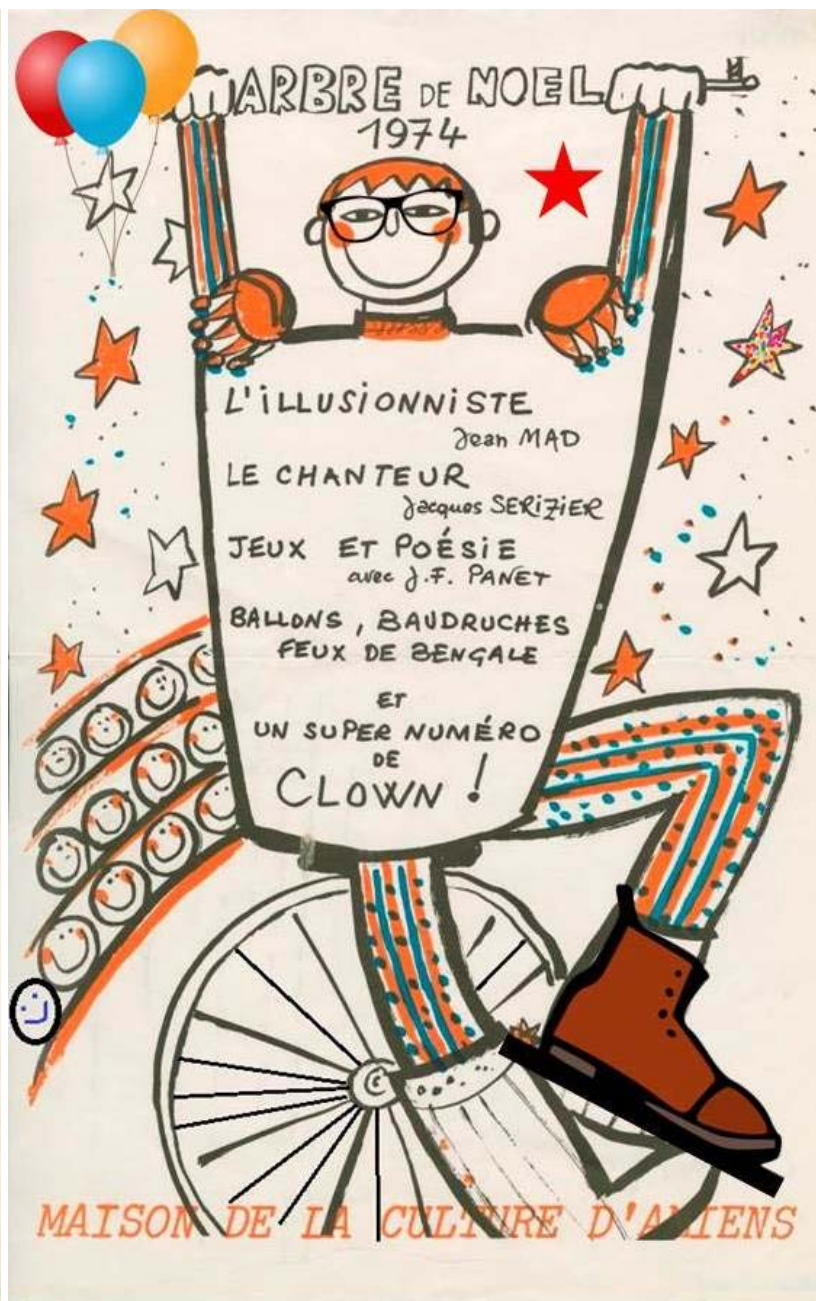 ARBRE DE NOEL
1974
L'iLLUSiONNiSTE
Jean MAD
LE CHANTEUR
Jacques SERiZiER
JEUX ET POÉSiE
avec J.F. PANET
BALLONS, BAUDRUCHES
FEUX DE BENGALE
ET
UN SUPER NUMÉRO
DE
CLOWN !
MAISON DE LA CULTURE D'AMIENS